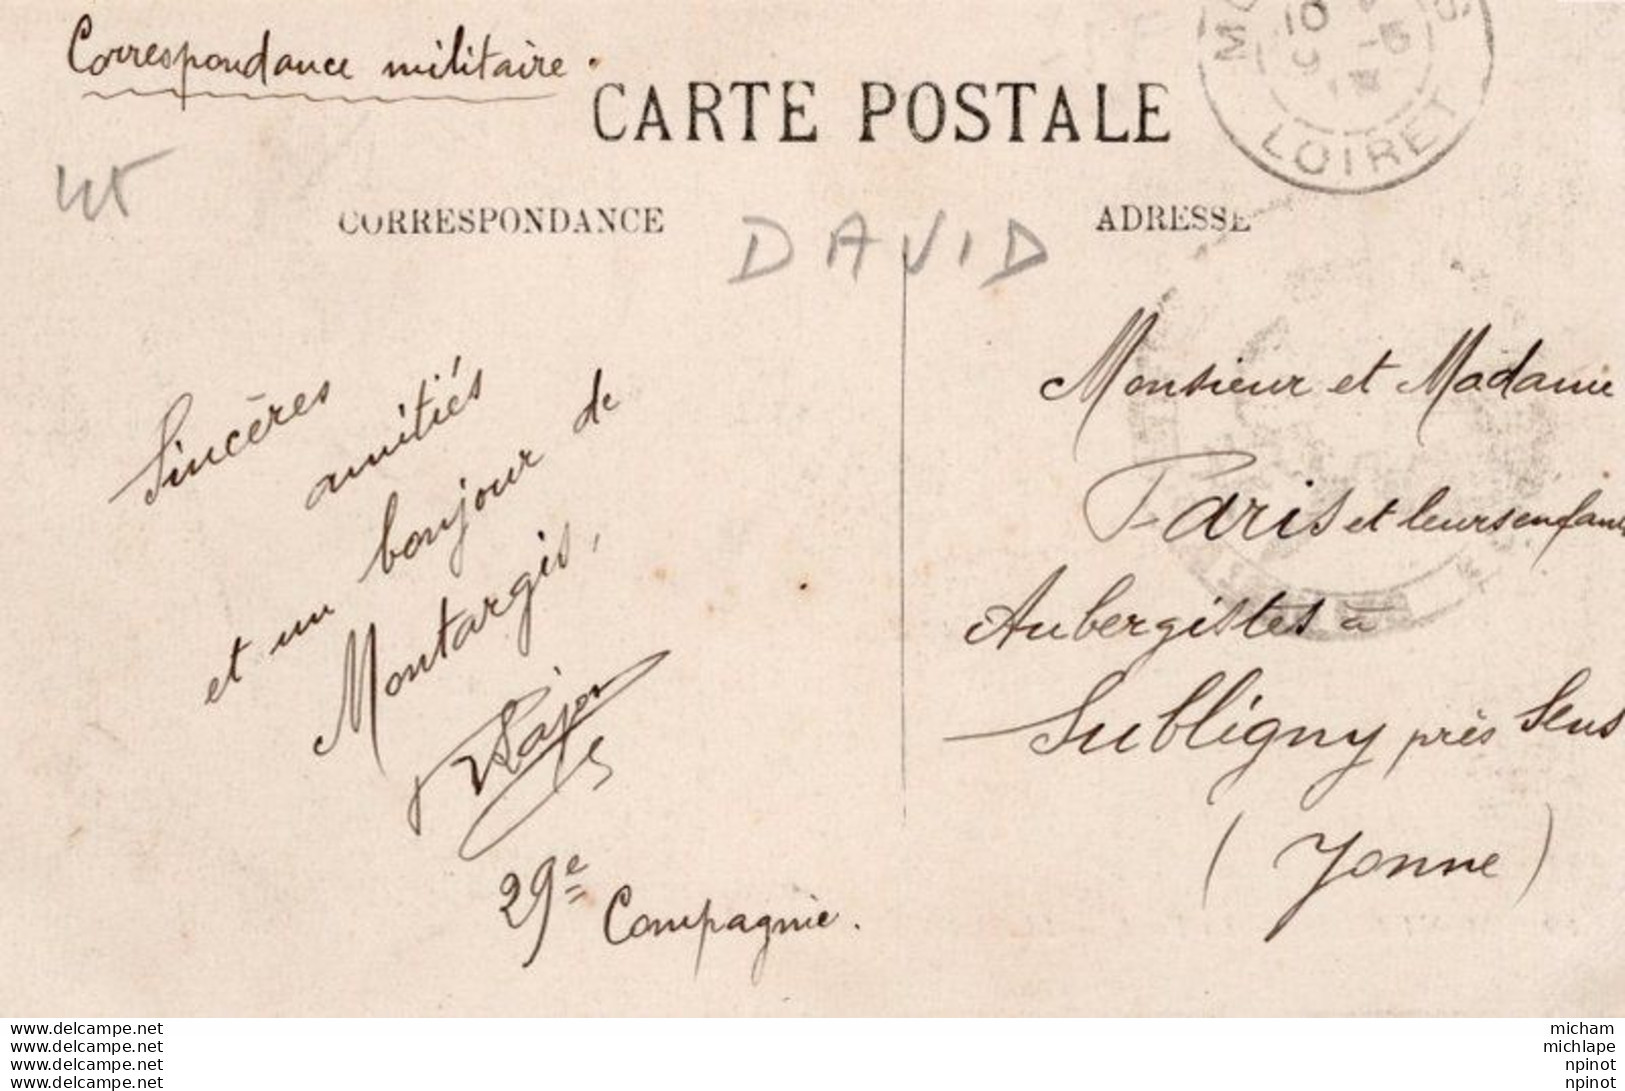 Correspondance militaire.
CARTE POSTALE
LOIRET
CORRESPONDANCE
ADRESSE
DAVID
Sincères
amitiés
et un bonjour de
Montargis,
29e Compagnie.
Monsieur et Madame
Paris et leurs enfants
Aubergistes à
Sublligny près Sens
(Yonne)
www.delcampe.net
www.delcampe.net
www.delcampe.net
www.delcampe.net
micham
michlape
npinot
npinot